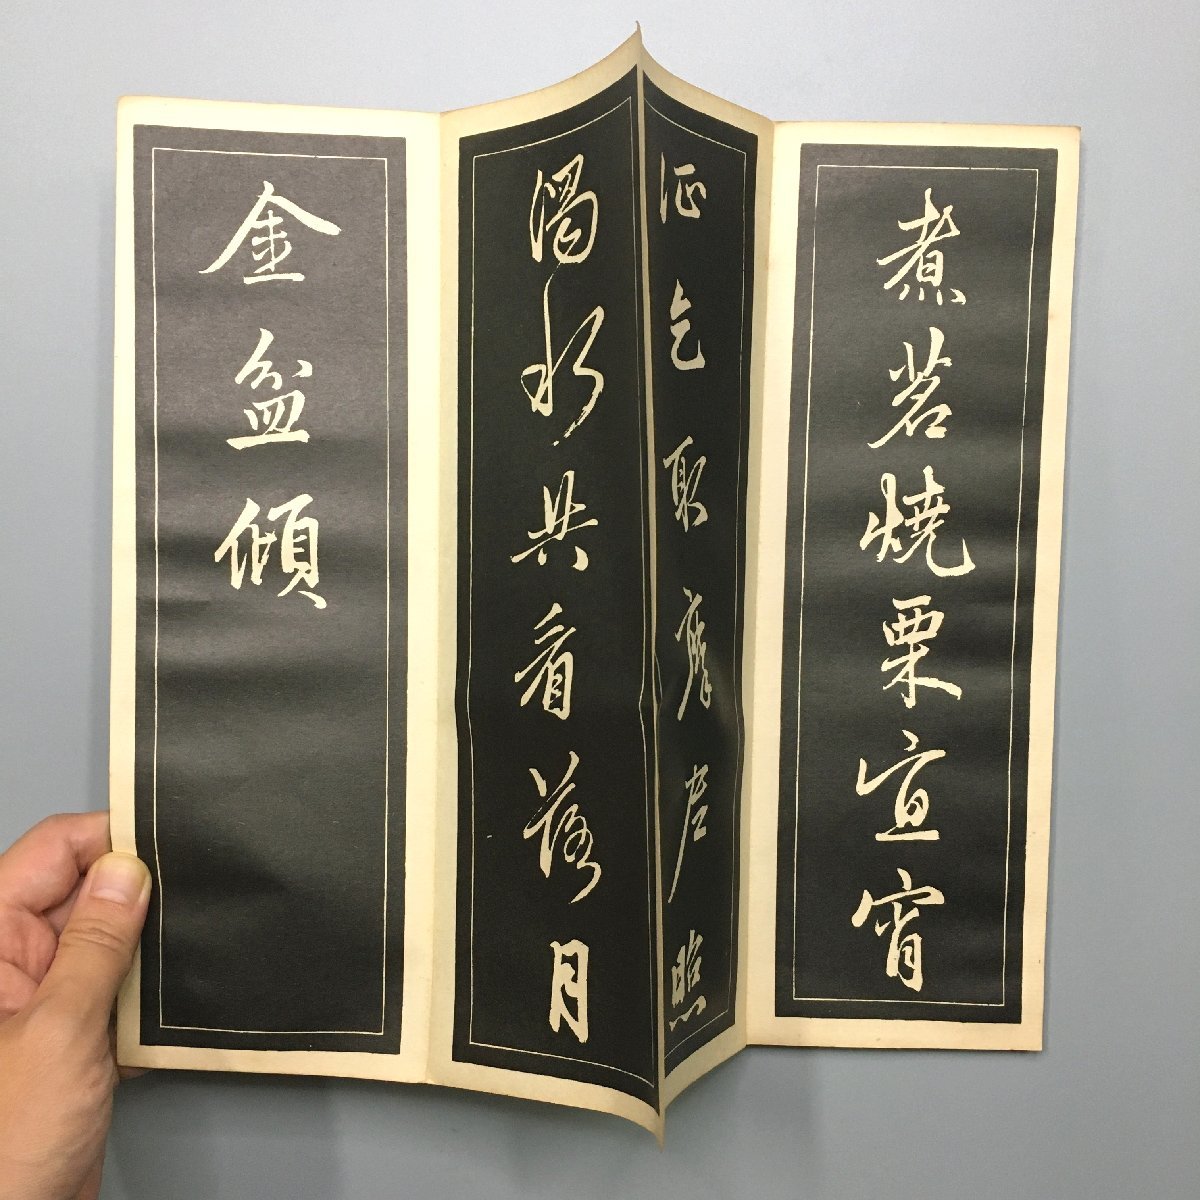 煮茗燒栗宜宵
征乞取摩尼照
濁水共看落月
金盆傾